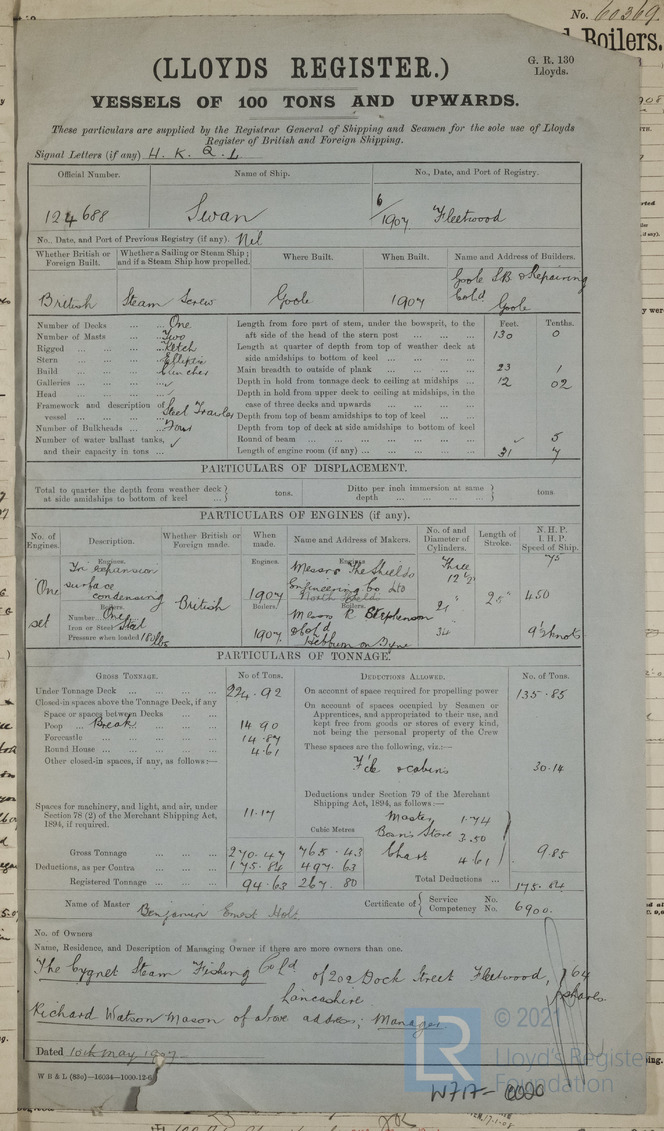 No. 60369.
d Boilers.
(LLOYDS REGISTER.)
G. R. 130
Lloyds.
VESSELS OF 100 TONS AND UPWARDS.
These particulars are supplied by the Registrar General of Shipping and Seamen for the sole use of Lloyds
Register of British and Foreign Shipping.
Signal Letters (if any) H. K. Q. L
Official Number. Name of Ship. No., Date, and Port of Registry.
124688 Swan 6/1907 Fleetwood
No., Date, and Port of Previous Registry (if any). Nil
Whether British or Foreign Built. Whether a Sailing or Steam Ship; and if a Steam Ship how propelled. Where Built. When Built. Name and Address of Builders.
British Steam Screw Goole 1907 Goole S.B. & Repairing Co Ld Goole
Number of Decks ... ... One
Number of Masts ... ... Two
Rigged ... ... ... Ketch
Stern ... ... ... Elliptic
Build ... ... ... Clincher
Galleries ... ... ... ✓
Head ... ... ... ✓
Framework and description of vessel ... ... ... Steel Trawler
Number of Bulkheads ... Four
Number of water ballast tanks, and their capacity in tons ... ✓
Feet. Tenths.
Length from fore part of stem, under the bowsprit, to the aft side of the head of the stern post ... ... 130 0
Length at quarter of depth from top of weather deck at side amidships to bottom of keel ... ... ...
Main breadth to outside of plank ... ... ... 23 1
Depth in hold from tonnage deck to ceiling at midships ... 12 02
Depth in hold from upper deck to ceiling at midships, in the case of three decks and upwards ... ...
Depth from top of beam amidships to top of keel ... ...
Depth from top of deck at side amidships to bottom of keel
Round of beam ... ... ... ✓ 5
Length of engine room (if any) ... ... ... 31 7
PARTICULARS OF DISPLACEMENT.
Total to quarter the depth from weather deck at side amidships to bottom of keel ... tons. Ditto per inch immersion at same depth ... ... ... tons
PARTICULARS OF ENGINES (if any).
No. of Engines. Description. Whether British or Foreign made. When made. Name and Address of Makers. No. of and Diameter of Cylinders. Length of Stroke. N. H. P. I. H. P. Speed of Ship.
Engines. Engines. Engines.
One set Tri expansion surface condensing British 1907 Messrs The Shields Engineering Co Ltd North Shields Three 12½" 21" 34 25" 75 450 9½ knots
Boilers. Boilers. Boilers.
Number One
Iron or Steel Steel
Pressure when loaded 180 lbs
1907 Messrs R Stephenson & Co Ld Hebburn on Tyne
PARTICULARS OF TONNAGE.
GROSS TONNAGE. No of Tons. DEDUCTIONS ALLOWED. No. of Tons.
Under Tonnage Deck ... ... ... 224.92
Closed-in spaces above the Tonnage Deck, if any
Space or spaces between Decks ... ...
Poop ... Break ... ... 14.90
Forecastle ... ... ... 14.87
Round House ... ... ... 4.61
Other closed-in spaces, if any, as follows:—
Spaces for machinery, and light, and air, under Section 78 (2) of the Merchant Shipping Act, 1894, if required. 11.17
On account of space required for propelling power 135.85
On account of spaces occupied by Seamen or Apprentices, and appropriated to their use, and kept free from goods or stores of every kind, not being the personal property of the Crew
These spaces are the following, viz.:—
F'cle & cabins 30.14
Deductions under Section 79 of the Merchant Shipping Act, 1894, as follows:—
Master 1.74
Cubic Metres Bosn's Store 3.50
Chart 4.61 9.85
Gross Tonnage ... ... 270.47 765.43
Deductions, as per Contra ... ... 175.84 497.63
Registered Tonnage ... ... 94.63 267.80
Total Deductions ... 175.84
Name of Master Benjamin Ernest Holt Certificate of Service No. Competency No. 6900.
No. of Owners
Name, Residence, and Description of Managing Owner if there are more owners than one.
The Cygnet Steam Fishing Co Ld of 202 Dock Street Fleetwood, 64
Lancashire shares
Richard Watson Mason of above address; Manager.
Dated 10th May 1907
© 2021
LR Lloyd's Register
Foundation
W B & L (83o)—16034—1000-12-6
W717-0020